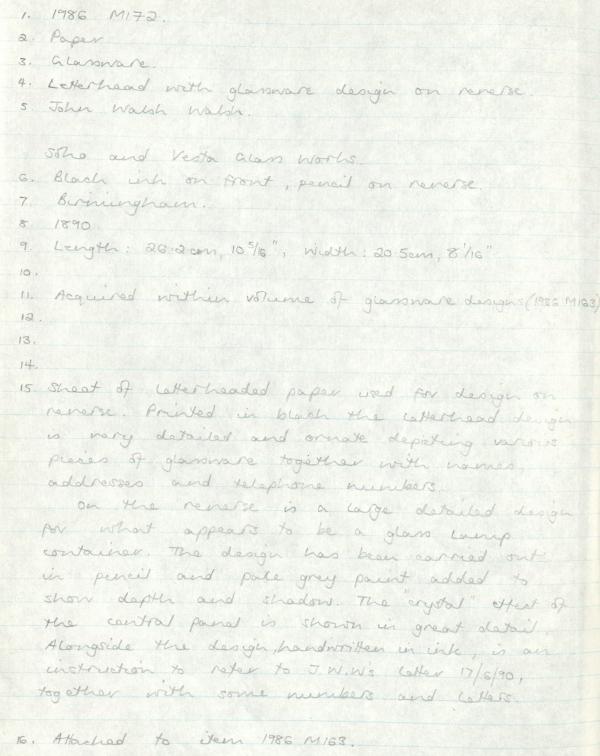 1. 1986 M172.
2. Paper
3. Glassware.
4. Letterhead with glassware design on reverse.
5 John Walsh Walsh.
Soho and Vesta Glass Works.
6. Black ink on front, pencil on reverse.
7. Birmingham.
8 1890
9. Length: 26.2cm, 10 5/16", Width: 20.5cm, 8 1/16"
10.
11. Acquired within volume of glassware designs (1986 M163)
12.
13.
14.
15 Sheet of letterheaded paper used for design on
reverse. Printed in black the letterhead design
is very detailed and ornate depicting various
pieces of glassware together with names,
addresses and telephone numbers.
On the reverse is a large detailed design
for what appears to be a glass lamp
container. The design has been carried out
in pencil and pale grey paint added to
show depth and shadow. The "crystal" effect of
the central panel is shown in great detail.
Alongside the design, handwritten in ink, is an
instruction to refer to J.W.W's letter 17/6/90,
together with some numbers and letters.
16. Attached to item 1986 M163.